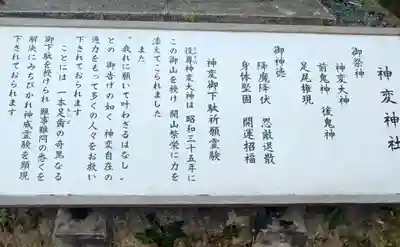 神変神社
御祭神
神変大神
前鬼神 後鬼神
足尾権現
御神徳
降魔降伏 怨敵退散
身体堅固 開運招福
神変御下駄祈願霊験
役尊神変大神は 昭和三十五年に
この御山を授け 開山繁栄に力を
添えてこられました
また
"我れに願いて叶わざるはなし"
との 御告げの如く 神変自在の
通力をもって多くの人々をお救い
下されております
ことには 一本足歯の奇異なる
御下駄を授けられ 願事難問の悉くを
解決にみちびかれ 神威霊験を顕現
下されております